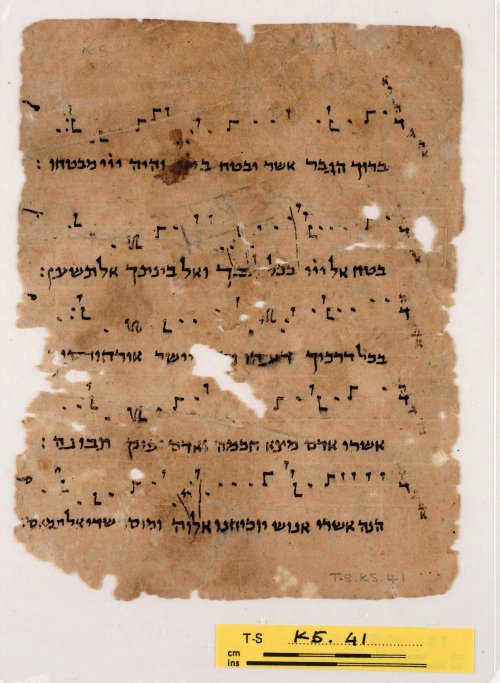 ברוך הגבר אשר יבטח והיה ייי מבטחו :
בטח אל ייי בכל לבך ואל בינתך אל תשען :
בכל דרכיך דעהו יישר
אשרי אדם מצא חכמה ואדם יפיק תבונה :
הנה אשרי אנוש יוכיחנו אלוה ומוסר שדי אל תמאס
T-S.K5.41
T-S K5. 41
cm
ins